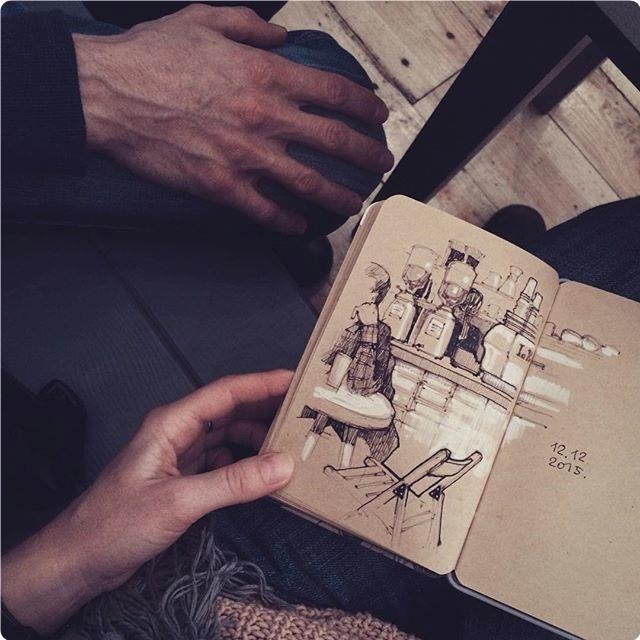 12.12
2015.